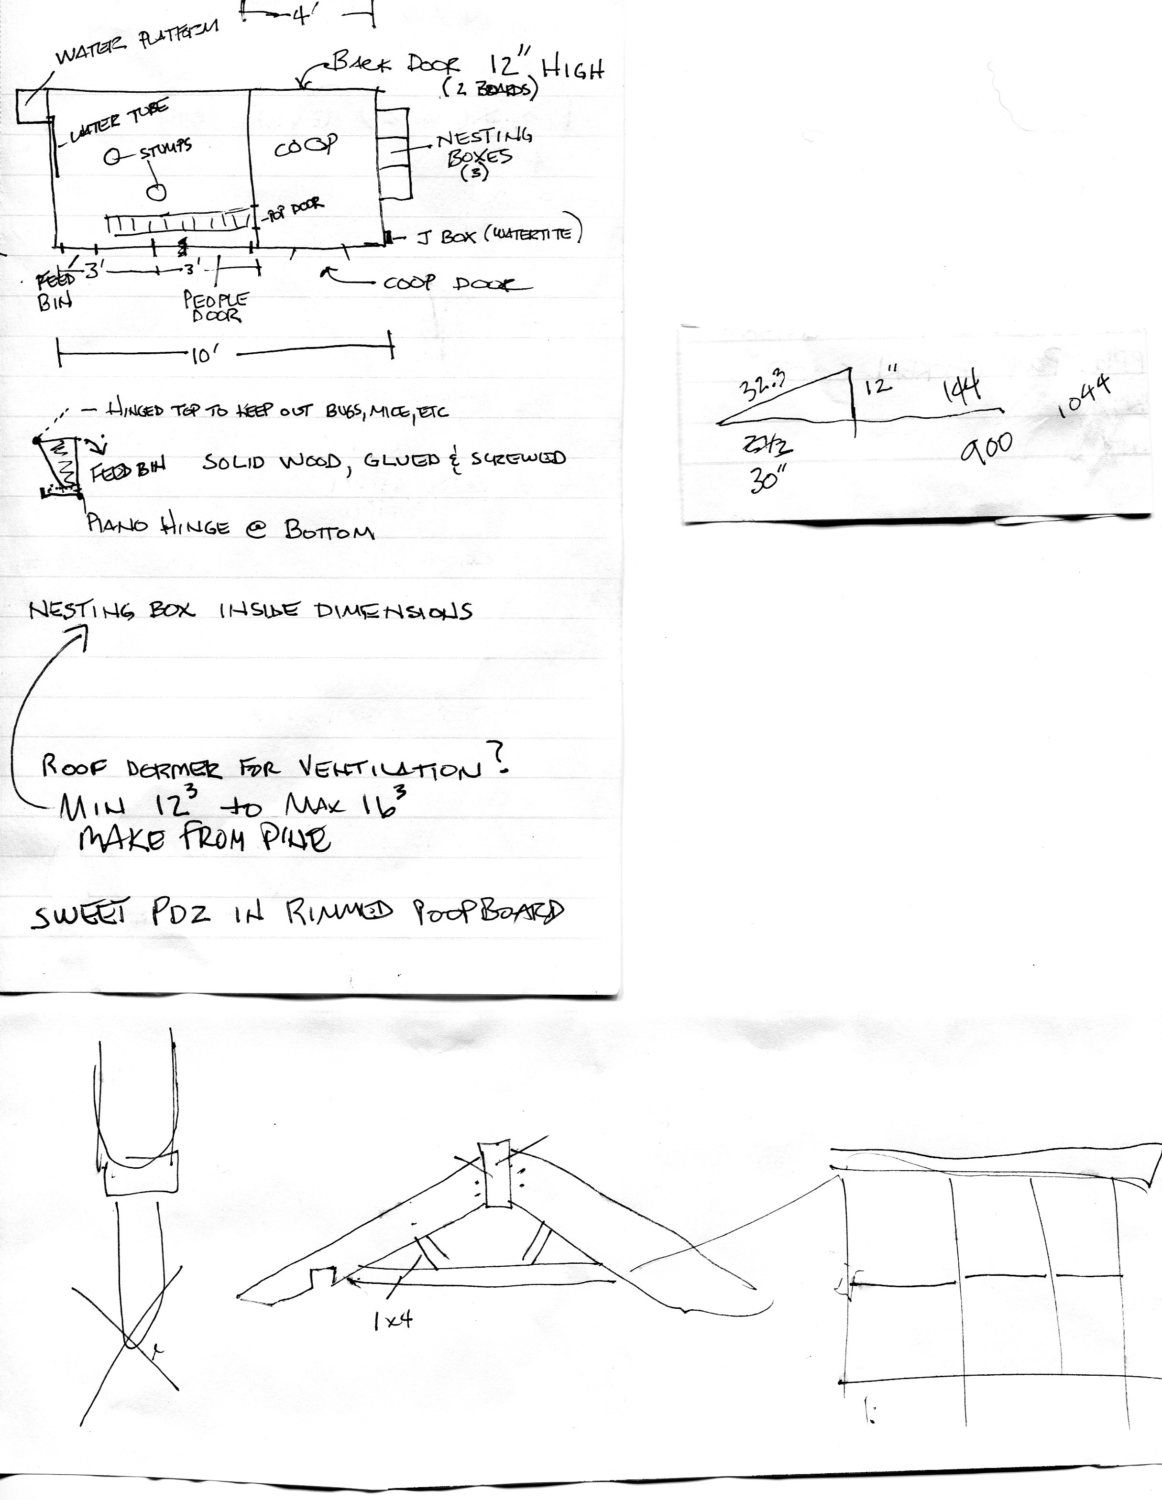 4'
WATER PLATFORM
BACK DOOR 12" HIGH
(2 BOARDS)
WATER TUBE
STUMPS
COOP
NESTING
BOXES
(3)
POP DOOR
J BOX (WATERTITE)
3'
3'
FEED
BIN
PEOPLE
DOOR
COOP DOOR
10'
HINGED TOP TO KEEP OUT BUGS, MICE, ETC
FEED BIN SOLID WOOD, GLUED & SCREWED
PIANO HINGE @ BOTTOM
NESTING BOX INSIDE DIMENSIONS
ROOF DORMER FOR VENTILATION?
MIN 12³ to MAX 16³
MAKE FROM PINE
SWEET PDZ IN RIMMED POOPBOARD
32.3
12"
144
1044
30"
900
1x4